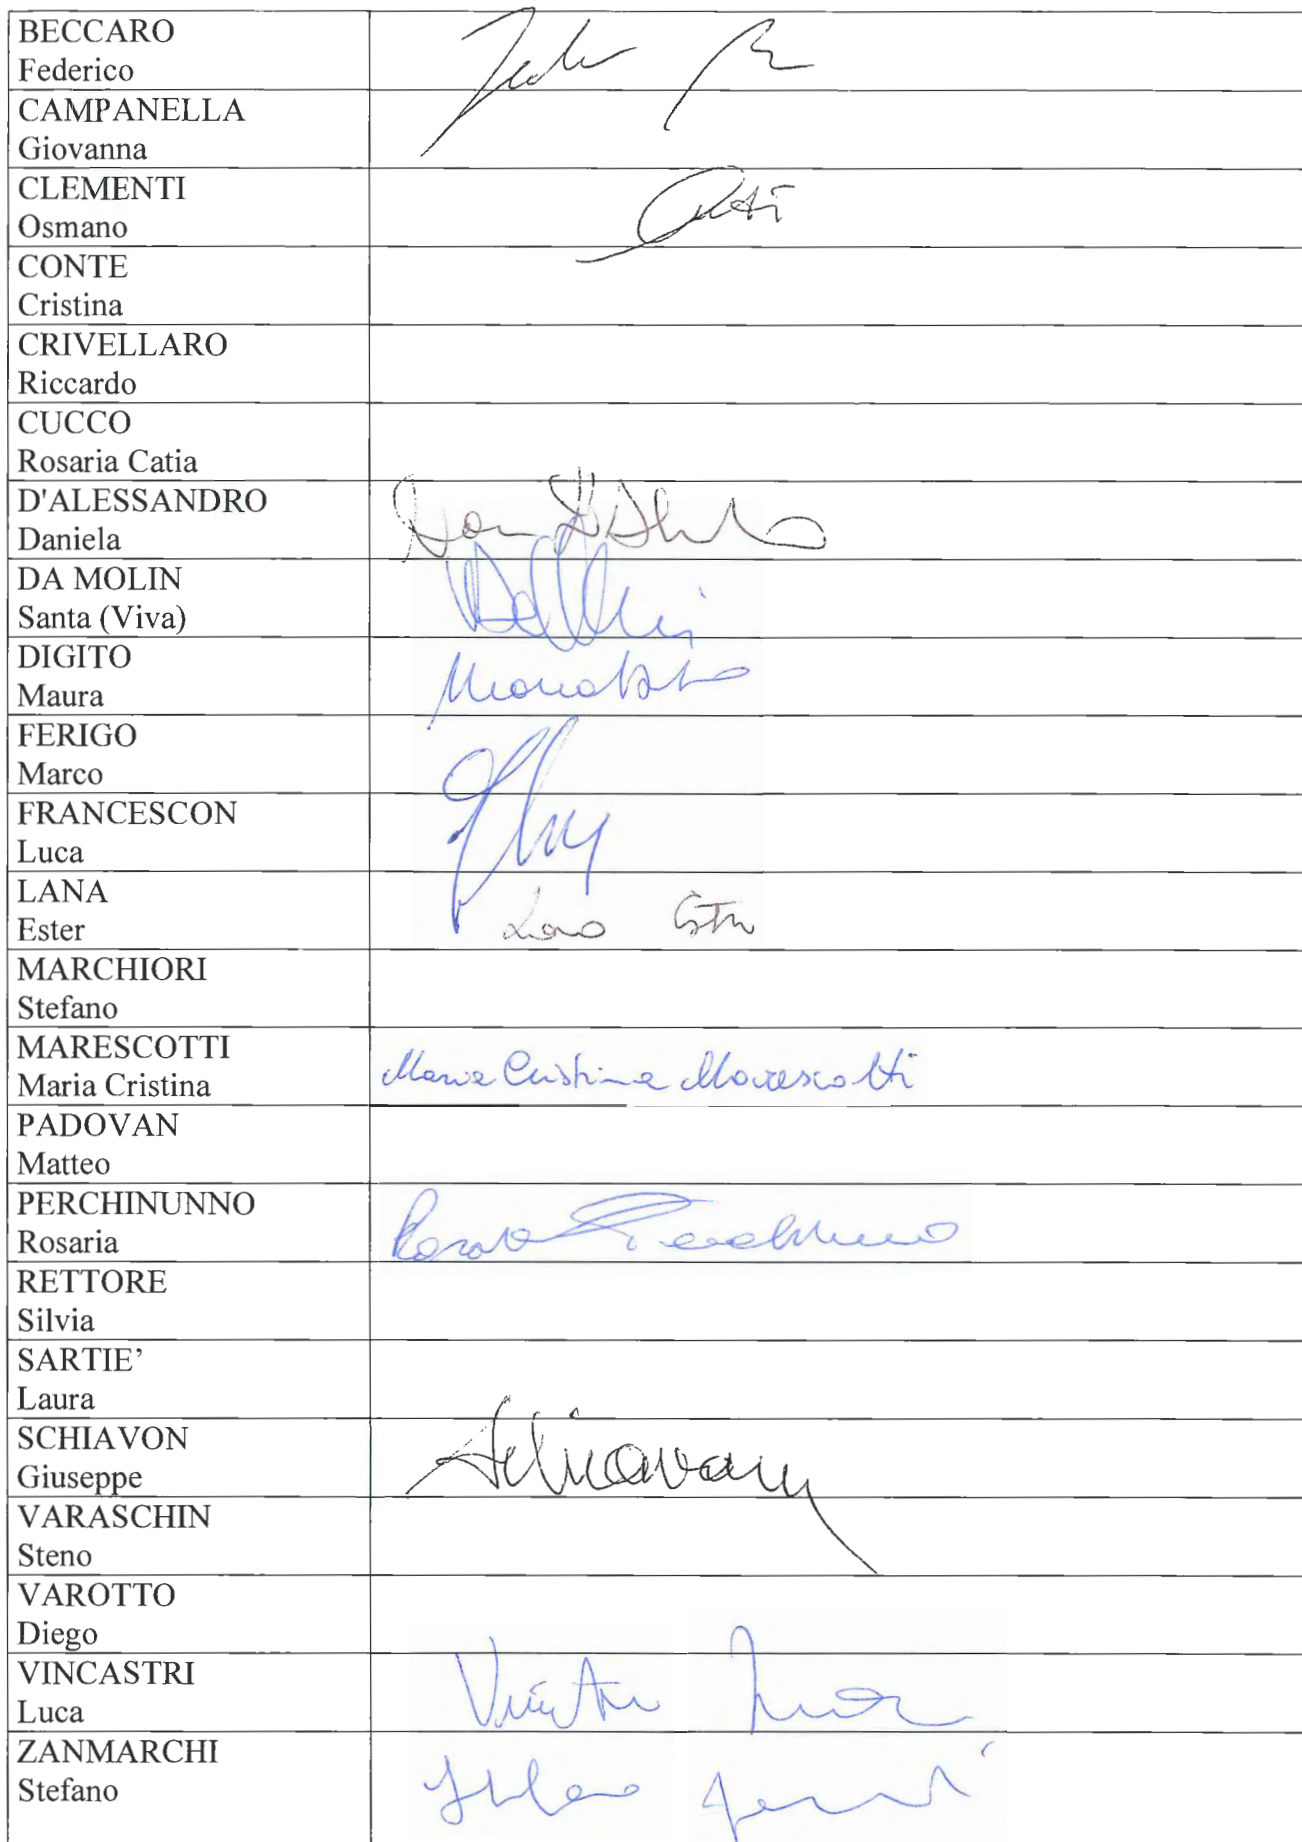 BECCARO
Federico
CAMPANELLA
Giovanna
CLEMENTI
Osmano
CONTE
Cristina
CRIVELLARO
Riccardo
CUCCO
Rosaria Catia
D'ALESSANDRO
Daniela
DA MOLIN
Santa (Viva)
DIGITO
Maura
FERIGO
Marco
FRANCESCON
Luca
LANA
Ester
MARCHIORI
Stefano
MARESCOTTI
Maria Cristina
Maria Cristina Marescotti
PADOVAN
Matteo
PERCHINUNNO
Rosaria
RETTORE
Silvia
SARTIE’
Laura
SCHIAVON
Giuseppe
VARASCHIN
Steno
VAROTTO
Diego
VINCASTRI
Luca
ZANMARCHI
Stefano